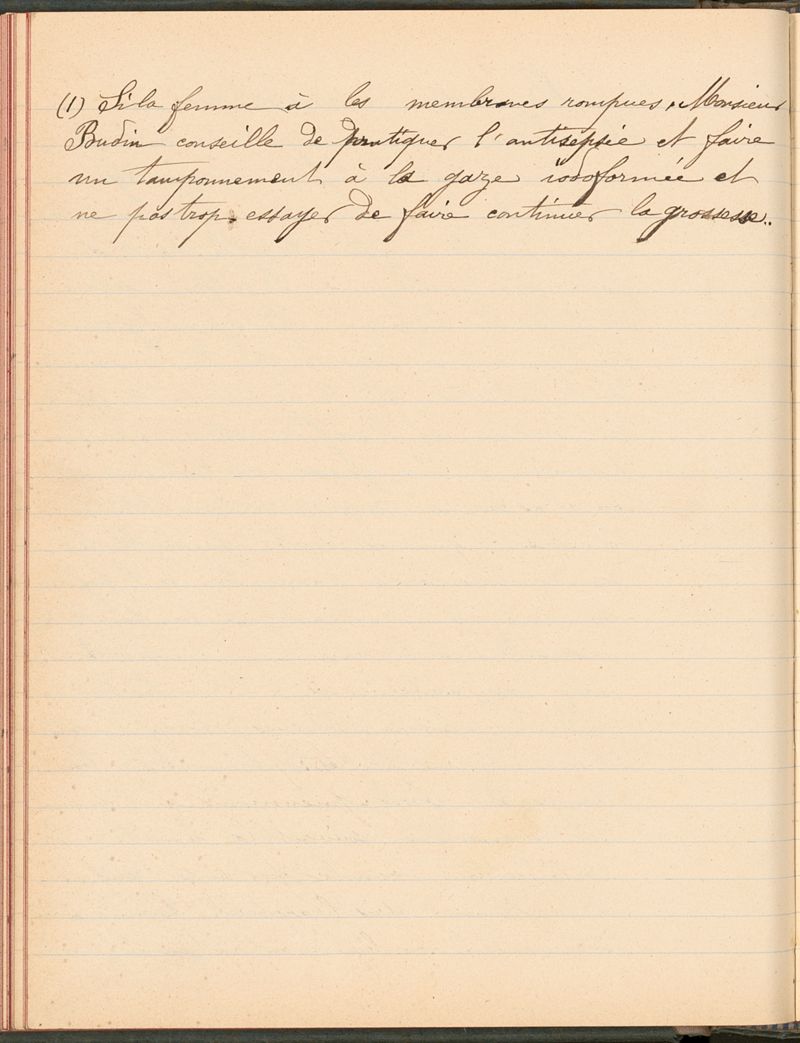 (1) Si la femme à les membranes rompues, Monsieur
Budin conseille de pratiquer l'antisepsie et faire
un tamponnement à la gaze iodoformée et
ne pas trop essayer de faire continuer la grossesse..